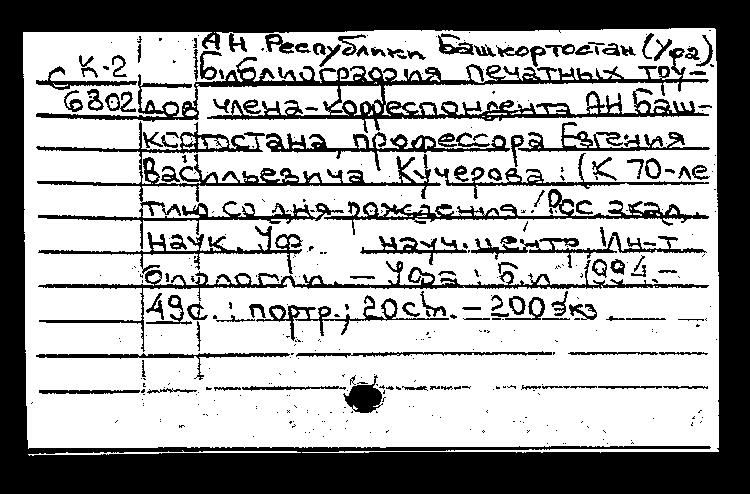 АН Республики Башкортостан (Уфа)
С К-2 Библиография печатных тру-
6802 дов члена-корреспондента АН Баш-
кортостана, профессора Евгения
Васильевича Кучерова : (К 70-ле
тию со дня рождения / Рос. акад.
наук. Уф. науч. центр. Ин-т
биологии. — Уфа : Б.и 1994.-
49с. : портр.; 20см. — 200 экз